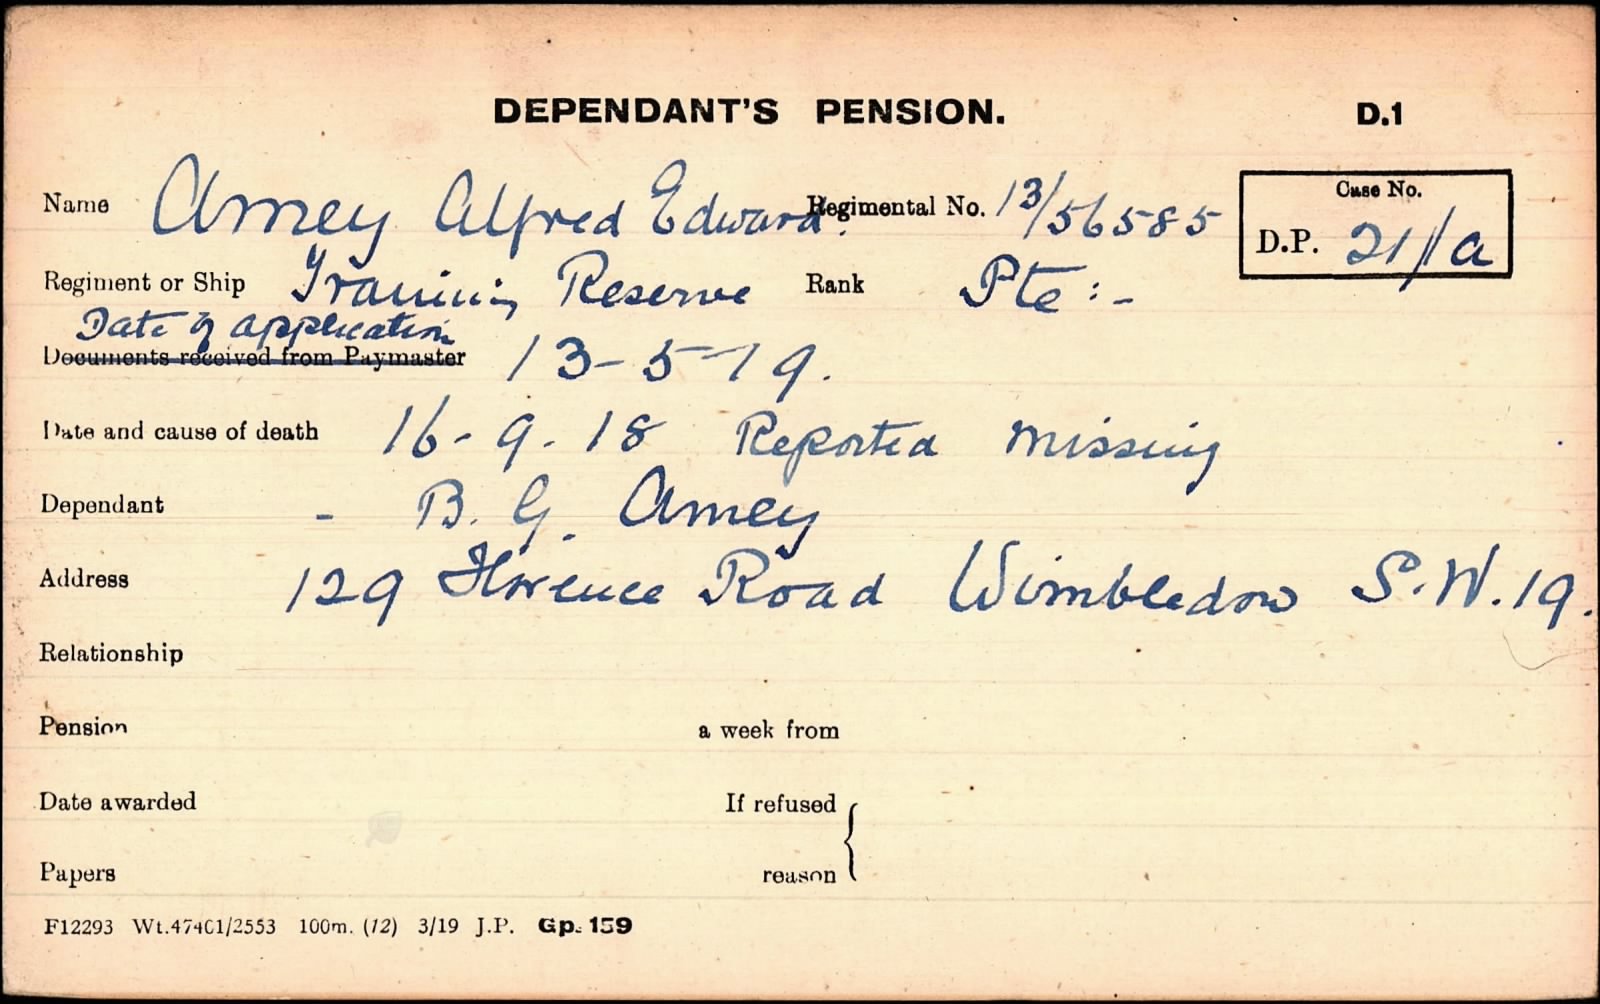 DEPENDANT'S PENSION. D.1
Name Amey Alfred Edward. Regimental No. 13/56585
Case No.
D.P. 21/1/a
Regiment or Ship Training Reserve Rank Pte:-
Date of application
Documents received from Paymaster 13-5-19.
Date and cause of death 16-9-18 Reported missing
Dependant - B. G. Amey
Address 129 Florence Road Wimbledon S.W.19.
Relationship
Pension a week from
Date awarded If refused
Papers reason
F12293 Wt.47401/2553 100m. (12) 3/19 J.P. Gp. 159